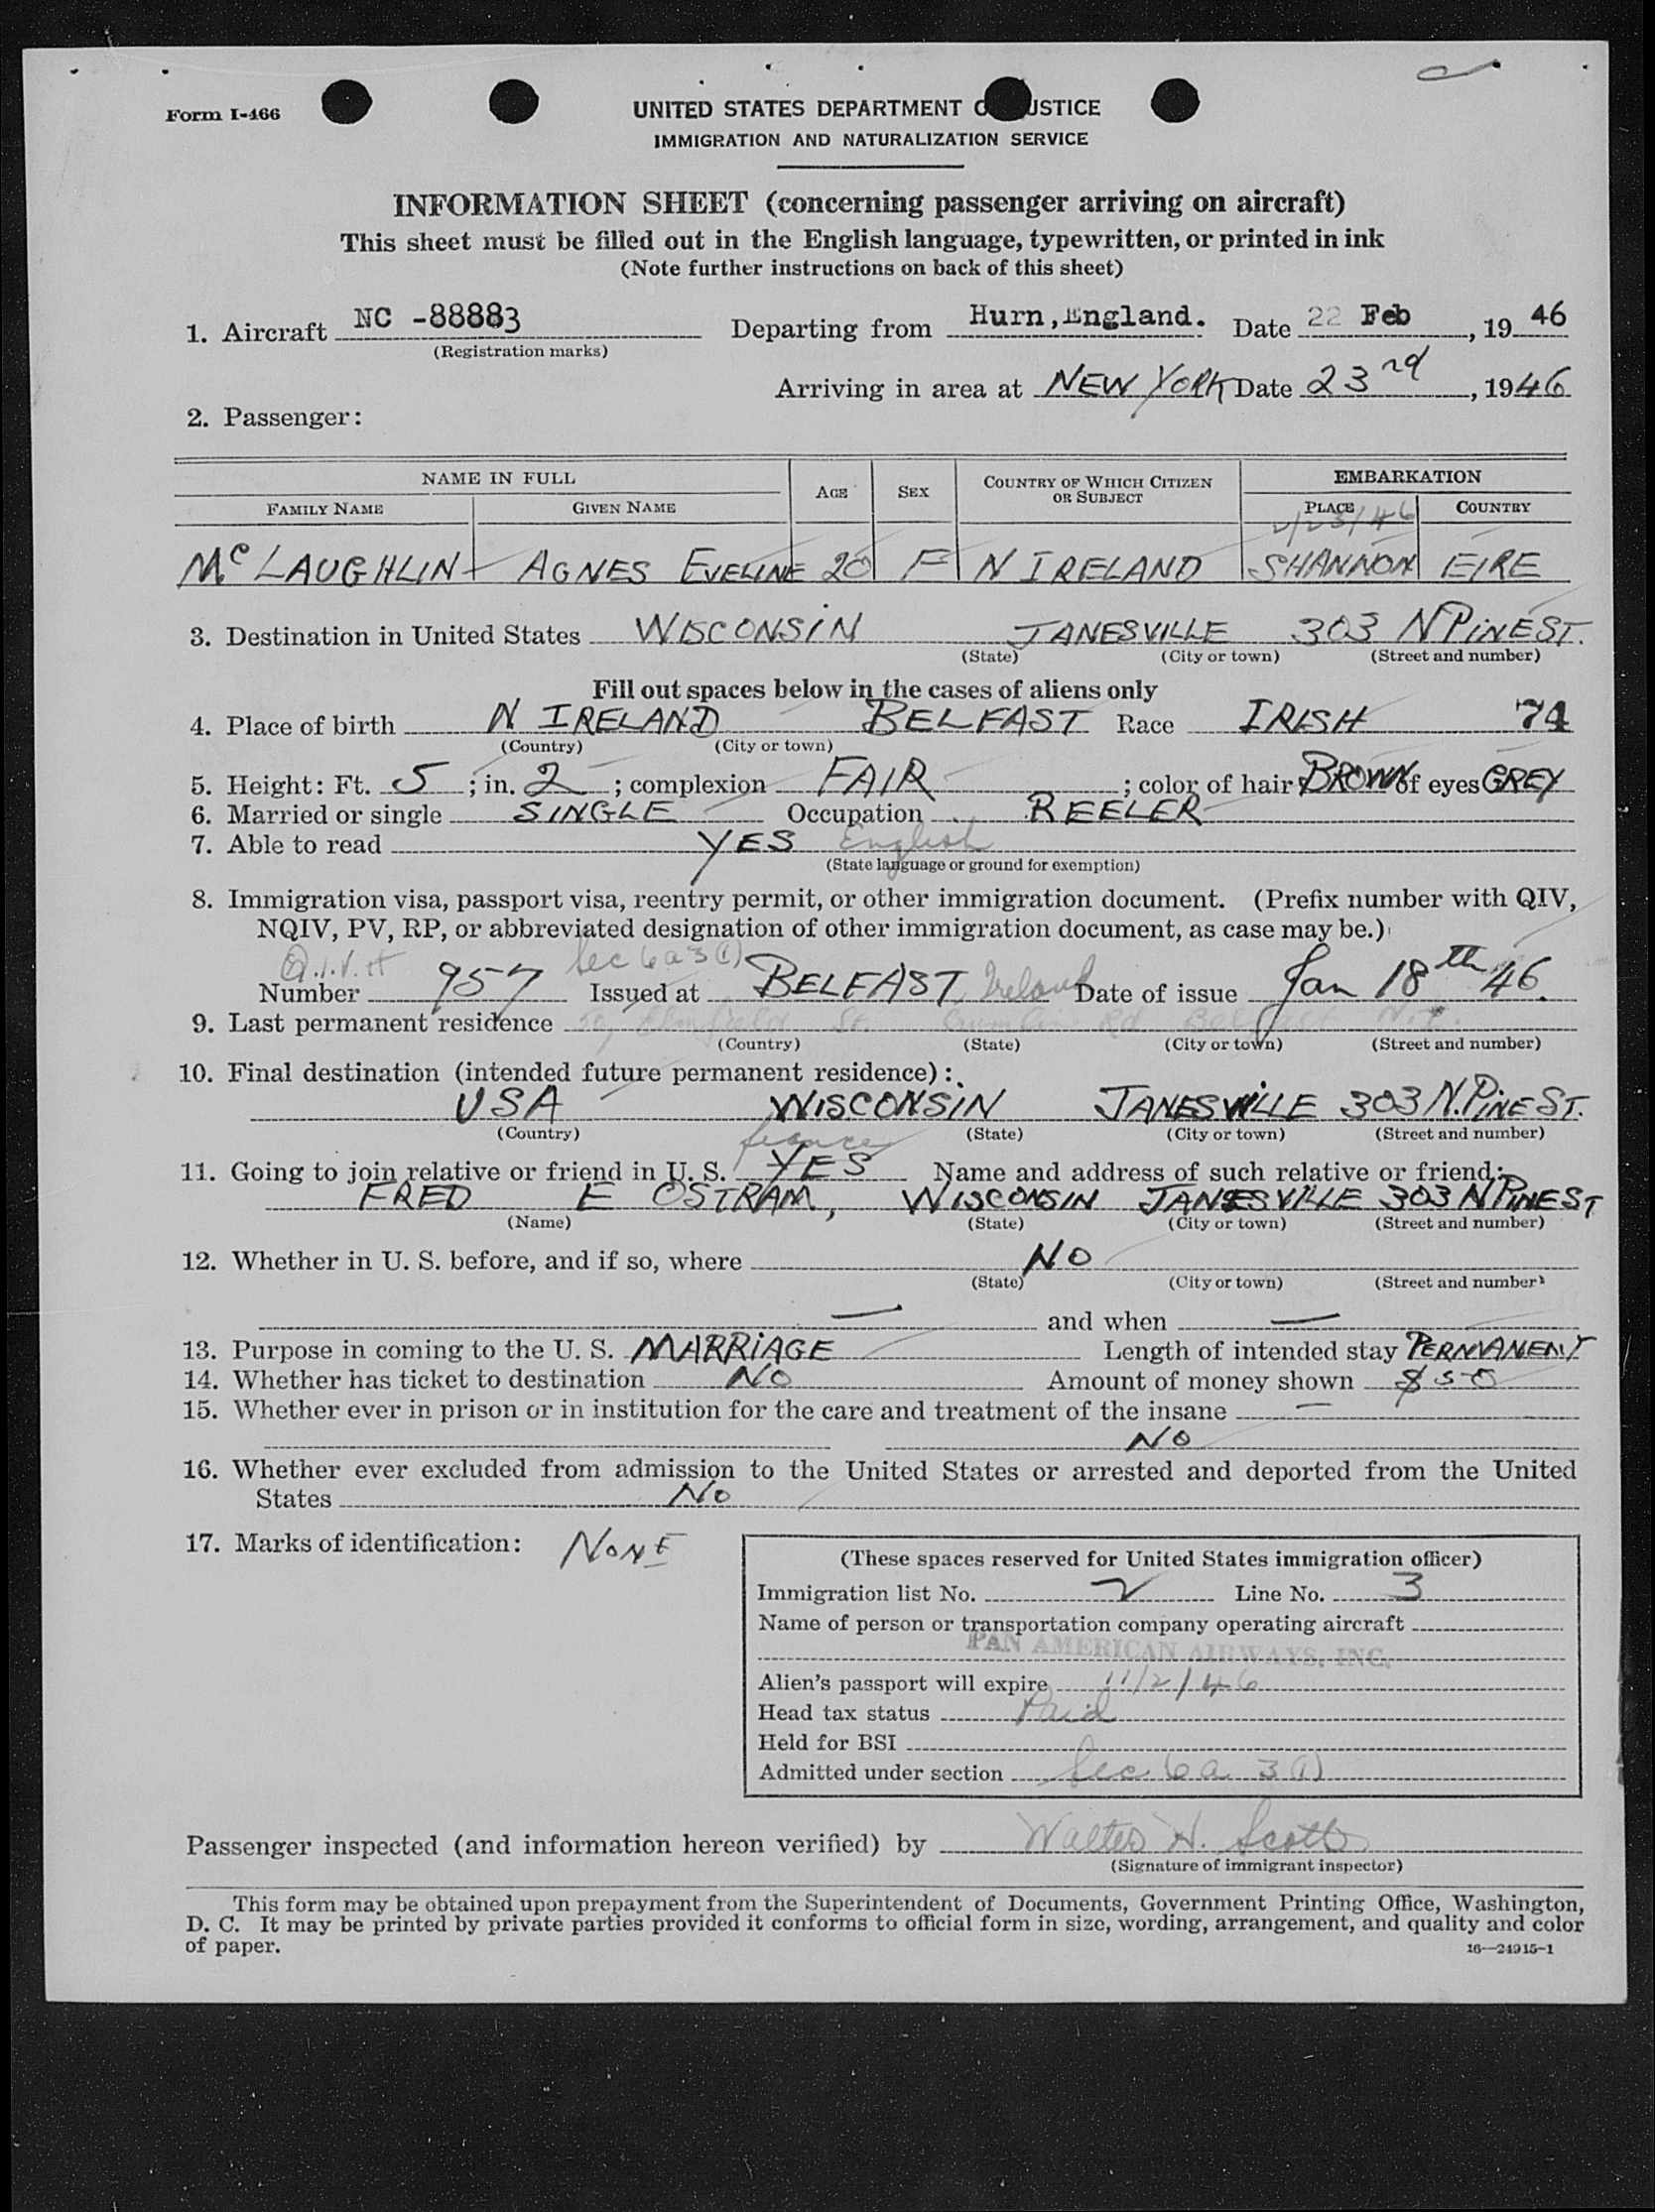 Form I-466
UNITED STATES DEPARTMENT O JUSTICE
IMMIGRATION AND NATURALIZATION SERVICE
INFORMATION SHEET (concerning passenger arriving on aircraft)
This sheet must be filled out in the English language, typewritten, or printed in ink
(Note further instructions on back of this sheet)
1. Aircraft NC -88883 Departing from Hurn, England. Date 22 Feb, 19 46
(Registration marks)
Arriving in area at NEW YORK Date 23rd, 1946
2. Passenger:
NAME IN FULL AGE SEX COUNTRY OF WHICH CITIZEN OR SUBJECT EMBARKATION
FAMILY NAME GIVEN NAME PLACE COUNTRY
2/23/46
McLAUGHLIN AGNES EVELINE 20 F N IRELAND SHANNON EIRE
3. Destination in United States WISCONSIN JANESVILLE 303 N PINE ST.
(State) (City or town) (Street and number)
Fill out spaces below in the cases of aliens only
4. Place of birth N IRELAND BELFAST Race IRISH 74
(Country) (City or town)
5. Height: Ft. 5; in. 2; complexion FAIR; color of hair BROWN of eyes GREY
6. Married or single SINGLE Occupation REELER
7. Able to read YES English
(State language or ground for exemption)
8. Immigration visa, passport visa, reentry permit, or other immigration document. (Prefix number with QIV,
NQIV, PV, RP, or abbreviated designation of other immigration document, as case may be.)
Q.I.V. # Sec 6a3(1)
Number 957 Issued at BELFAST, Ireland Date of issue Jan 18th 46.
9. Last permanent residence Elmfield St. Crumlin Rd Belfast N.I.
(Country) (State) (City or town) (Street and number)
10. Final destination (intended future permanent residence):
USA WISCONSIN JANESVILLE 303 N. PINE ST.
(Country) (State) (City or town) (Street and number)
fiance
11. Going to join relative or friend in U. S. YES Name and address of such relative or friend:
FRED E OSTRAM, WISCONSIN JANESVILLE 303 N PINE ST
(Name) (State) (City or town) (Street and number)
12. Whether in U. S. before, and if so, where NO
(State) (City or town) (Street and number)
— and when —
13. Purpose in coming to the U. S. MARRIAGE Length of intended stay PERMANENT
14. Whether has ticket to destination NO Amount of money shown $50
15. Whether ever in prison or in institution for the care and treatment of the insane —
NO
16. Whether ever excluded from admission to the United States or arrested and deported from the United
States NO
17. Marks of identification: NONE
(These spaces reserved for United States immigration officer)
Immigration list No. 2 Line No. 3
Name of person or transportation company operating aircraft
PAN AMERICAN AIRWAYS, INC.
Alien's passport will expire 11/2/46
Head tax status Paid
Held for BSI
Admitted under section Sec 6a 3(1)
Passenger inspected (and information hereon verified) by Walter H. Scott
(Signature of immigrant inspector)
This form may be obtained upon prepayment from the Superintendent of Documents, Government Printing Office, Washington,
D. C. It may be printed by private parties provided it conforms to official form in size, wording, arrangement, and quality and color
of paper.
16—24915-1